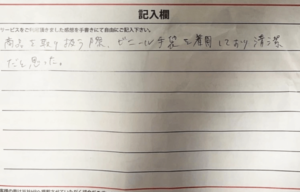 記入欄
サービスをご利用頂きました感想を手書きにて自由にご記入下さい。
商品を取り扱う際、ビニール手袋を着用しており清潔
だと思った。